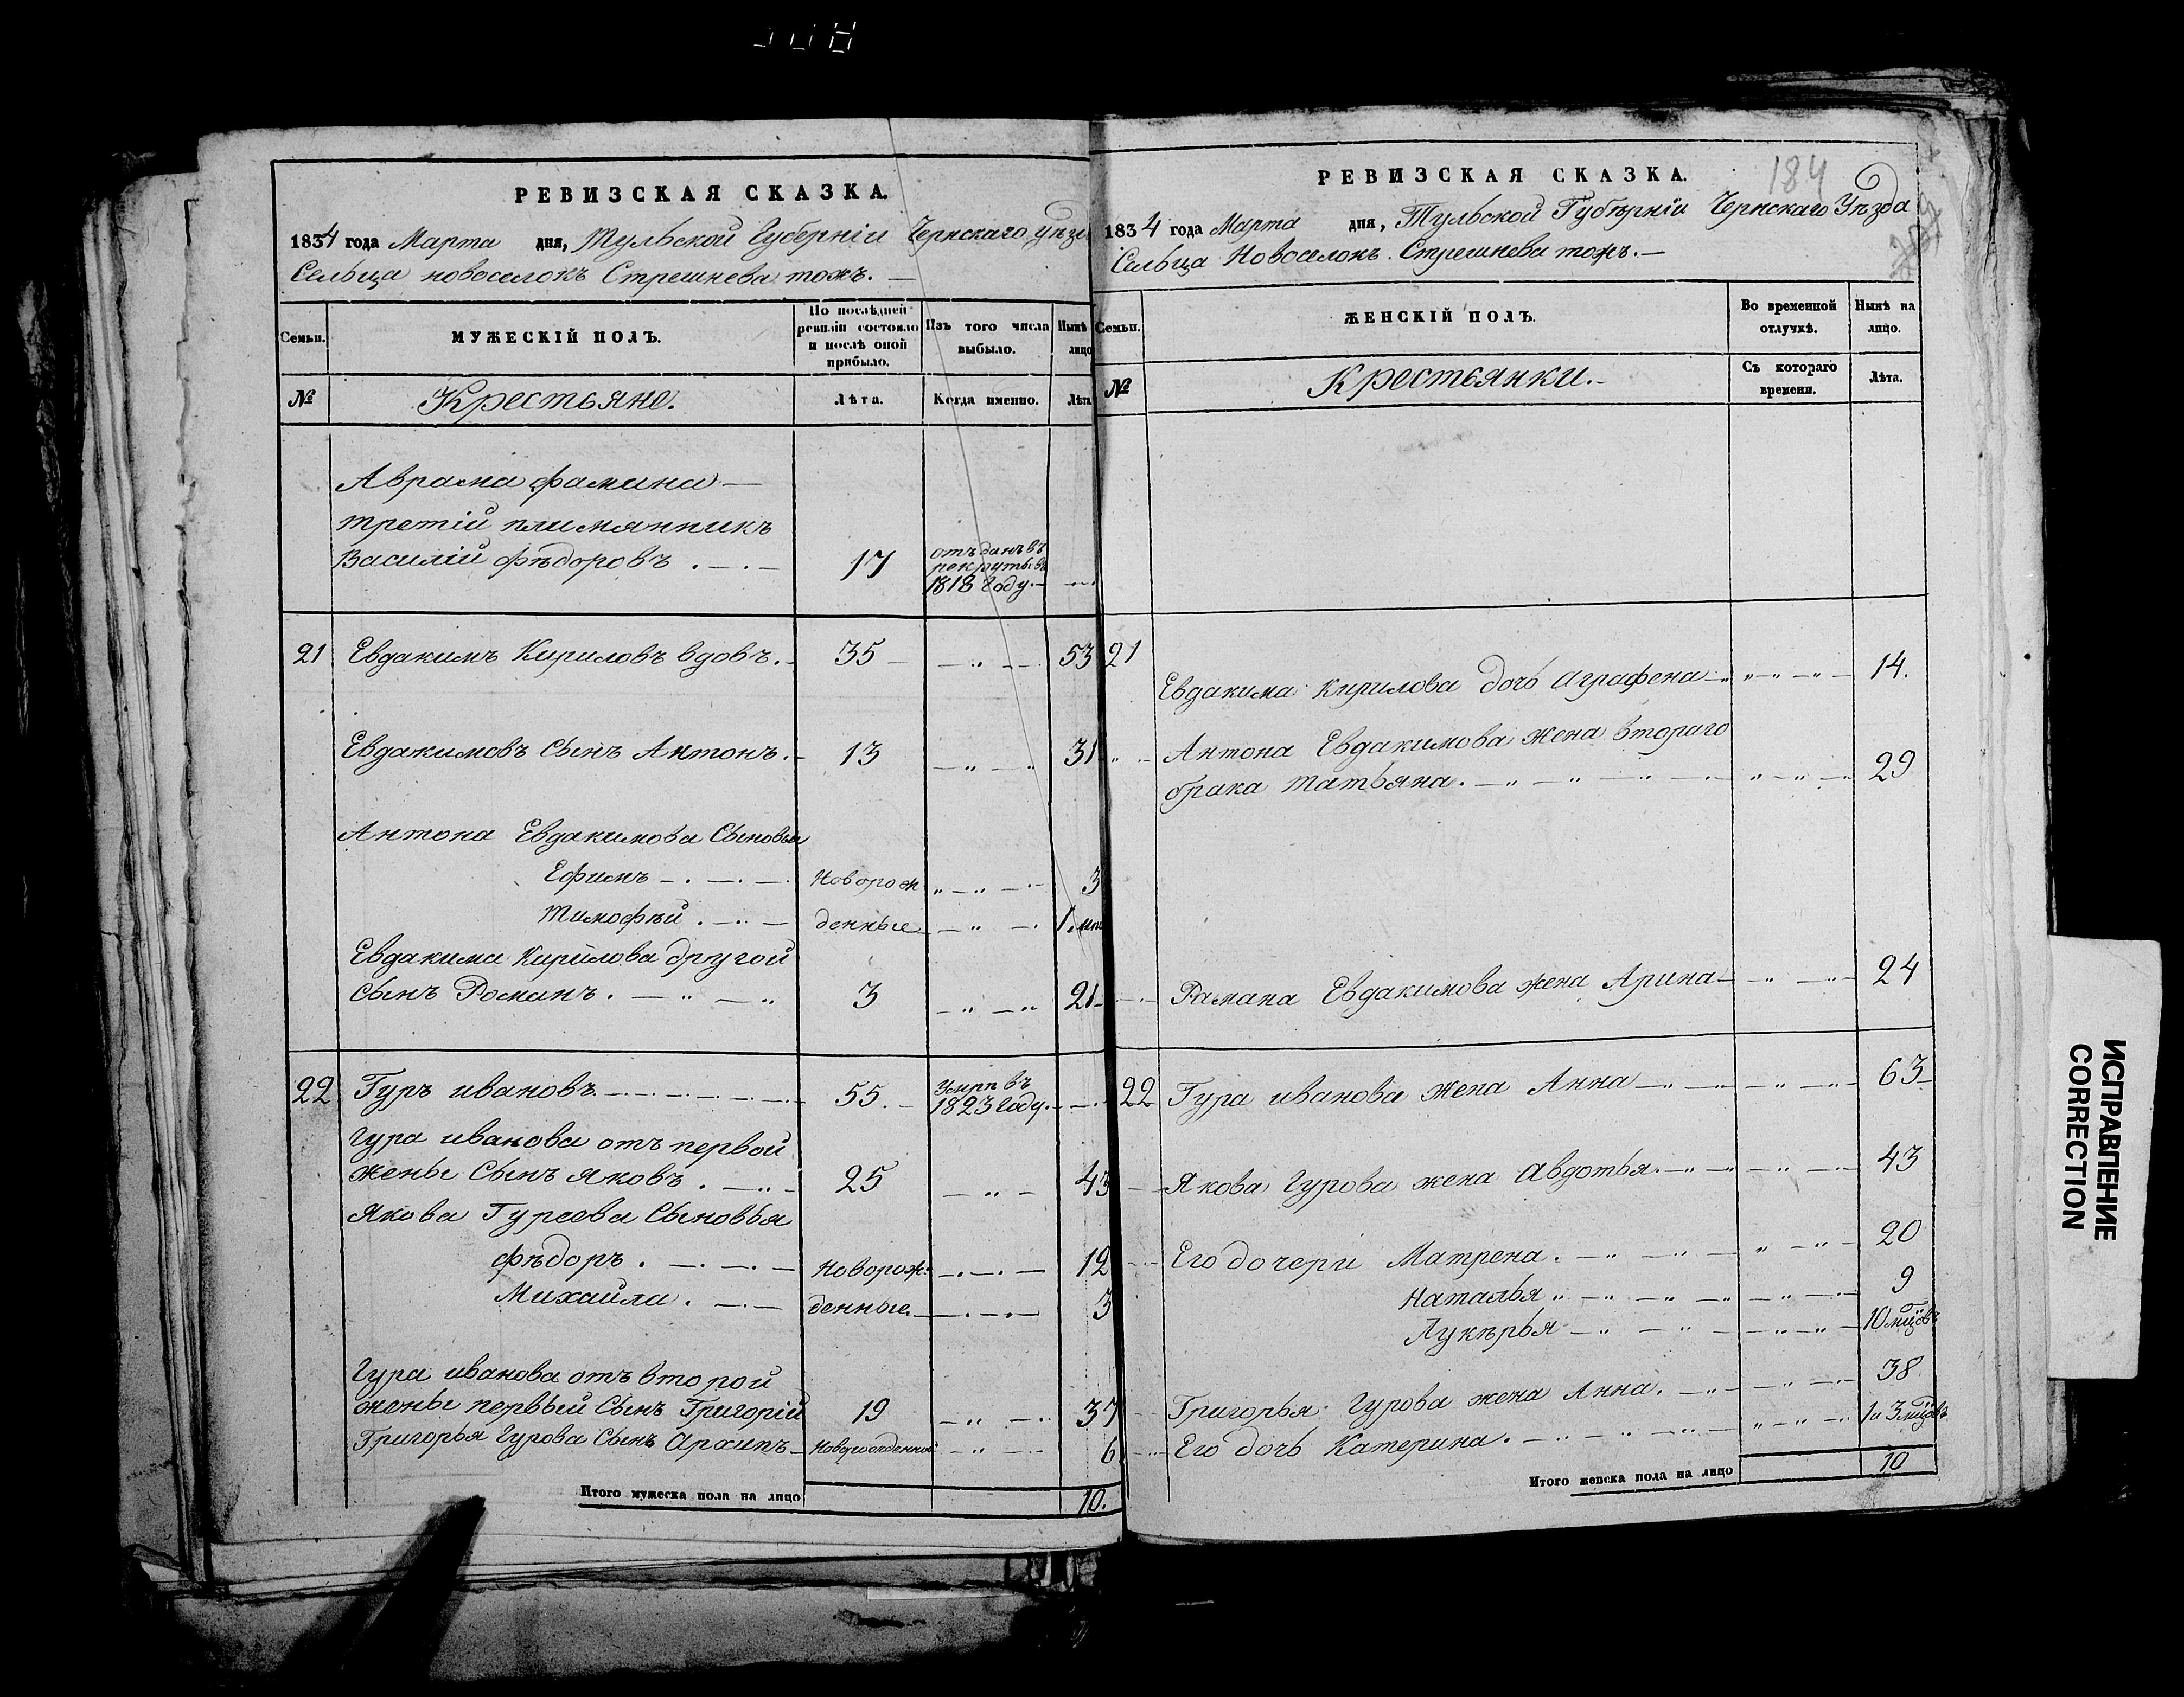 РЕВИЗСКАЯ СКАЗКА.
1834 года Марта дня, Тульской Губерніи Чернскаго уѣзд
Сельца новоселокъ Стрешнева тожъ. —
Семьи.
МУЖЕСКІЙ ПОЛЪ.
По послѣдней ревизіи состояло и послѣ оной прибыло.
Изъ того числа выбыло.
Нынѣ лицо
№
Крестьяне.
Лѣта.
Когда именно.
Лѣта
Аврама фамина —
третій плимянникъ
Василій фѣдоровъ . — . — 17 отъданъ въ рекруты въ 1818 году. —
21 Евдакимъ Кириловъ вдовъ. — 35 53
Евдакимовъ Сынъ Антонъ. — 13 31
Антона Евдакимова Сыновья
Ефимъ — . — . — Новорож 3
Тимофѣй . — .. — денные 1. мц
Евдакима Кирилова другой
сынъ Романъ . — „ — „ 3 21
22 Гуръ ивановъ. 55. — Умрп въ 1823 году. —
Гура иванова отъ первой
жены Сынъ Яковъ . — „ — 25 43
Якова Гурева Сыновья
фѣдоръ . — . — . — Новорож: 12
Михайла . — . — денные 3
Гура иванова отъ второй
жены первый Сынъ Григорій 19 37
Григорья Гурова Сынъ Архипъ — Новорожденной 6
Итого мужеска пола на лицо 10.
184
РЕВИЗСКАЯ СКАЗКА.
1834 года Марта дня, Тульской Губѣрніи Чернскаго Уѣзда
Сельца Новоселокъ. Стрешнева тожъ. —
Семьи.
ЖЕНСКІЙ ПОЛЪ.
Во временной отлучкѣ.
Нынѣ на лицо.
№
Крестьянки. —
Съ котораго времени.
Лѣта.
21
Евдакима Кирилова дочь Аграфена 14.
Антона Евдакимова жена втораго
брака татьяна. 29
Рамана Евдакимова жена Арина 24
22 Гура иванова жена Анна 63
Якова Гурова жена Авдотья. 43
Его дочери Матрена. 20
Наталья 9
Лукѣрья 10 мцовъ
Григорья Гурова жена Анна. 38
Его дочь Катерина. 1 и 3 мцовъ
Итого женска пола на лицо 10
ИСПРАВЛЕНИЕ
CORRECTION